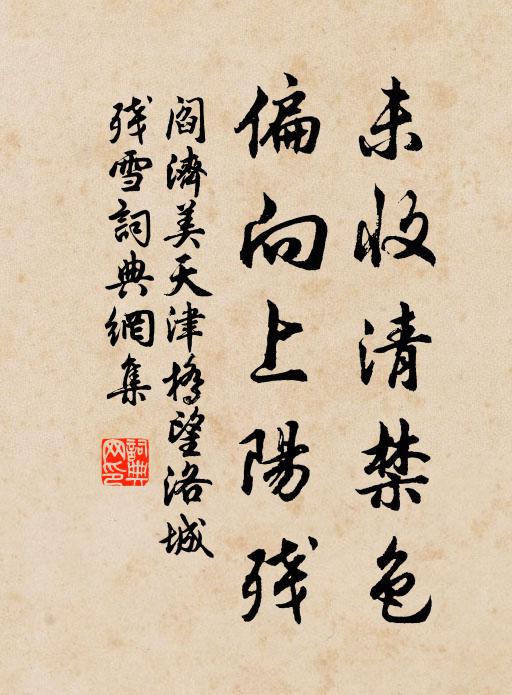 未收清禁色
偏向上陽殘
閻濟美天津橋望洛城
殘雪詞典網集
詞典
网印